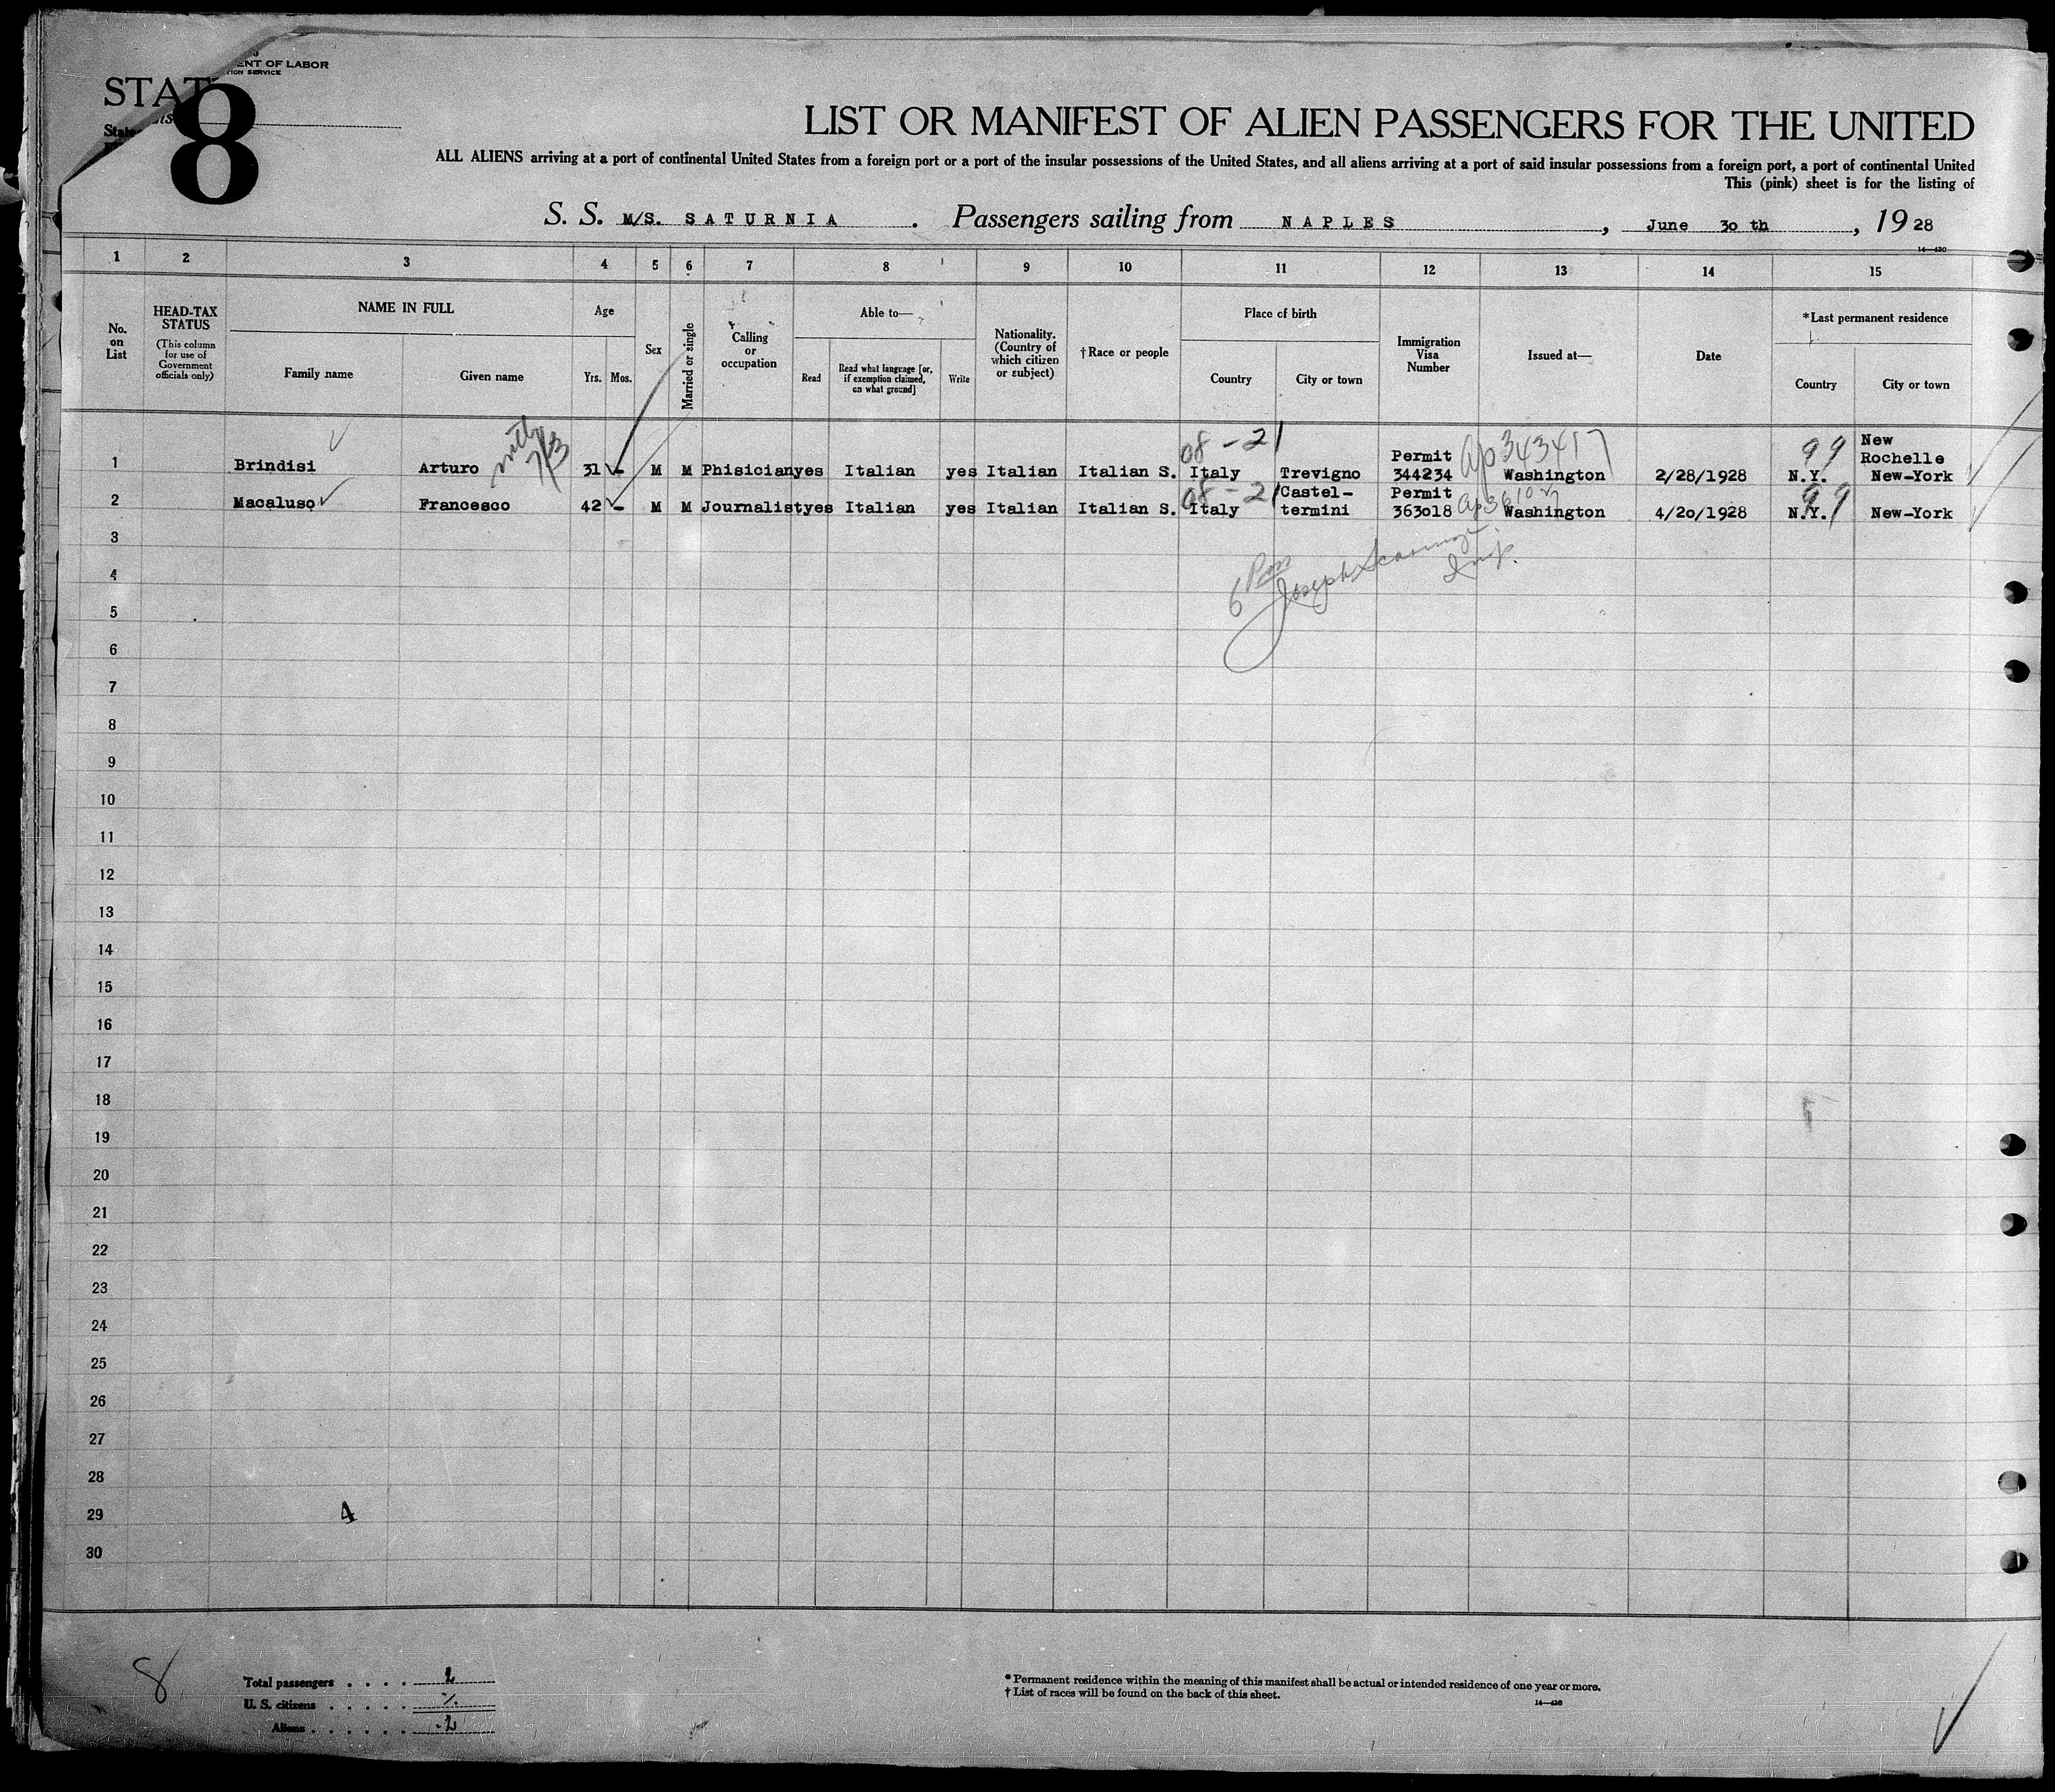 ENT OF LABOR
TION SERVICE
STAT
8
State
LIST OR MANIFEST OF ALIEN PASSENGERS FOR THE UNITED
ALL ALIENS arriving at a port of continental United States from a foreign port or a port of the insular possessions of the United States, and all aliens arriving at a port of said insular possessions from a foreign port, a port of continental United
This (pink) sheet is for the listing of
S. S. M/S. SATURNIA . Passengers sailing from NAPLES , June 30 th , 19 28
14—430
1 2 3 4 5 6 7 8 9 10 11 12 13 14 15
No. on List
HEAD-TAX STATUS
(This column for use of Government officials only)
NAME IN FULL
Family name Given name
Age
Yrs. Mos.
Sex
Married or single
Calling or occupation
Able to—
Read
Read what language [or, if exemption claimed, on what ground]
Write
Nationality. (Country of which citizen or subject)
† Race or people
Place of birth
Country City or town
Immigration Visa Number
Issued at—
Date
*Last permanent residence
Country City or town
08 - 21 99 New
7/3 Permit ap 343417 Rochelle
1 Brindisi Arturo 31 - M M Phisician yes Italian yes Italian Italian S. Italy Trevigno 344234 Washington 2/28/1928 N.Y. New-York
08 - 21 Castel- Permit 99
2 Macaluso Francesco 42 - M M Journalist yes Italian yes Italian Italian S. Italy termini 363018 Washington 4/20/1928 N.Y. New-York
3
6 Pm Joseph
4
Insp.
5
6
7
8
9
10
11
12
13
14
15
16
17
18
19
20
21
22
23
24
25
26
27
28
29
4
30
8
Total passengers . . . . 2
U. S. citizens . . . . . %.
Aliens . . . . . . 2
* Permanent residence within the meaning of this manifest shall be actual or intended residence of one year or more.
† List of races will be found on the back of this sheet.
14—430